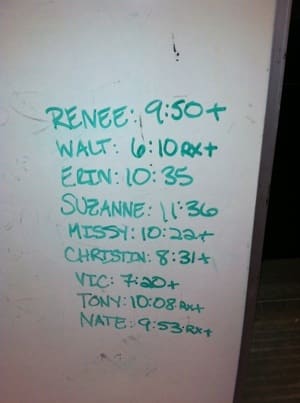 RENEE: 9:50+
WALT: 6:10 RX+
ERIN: 10:35
SUZANNE: 11:36
MISSY: 10:22+
CHRISTIN: 8:31+
VIC: 7:20+
TONY: 10:08 RX+
NATE: 9:53 RX+